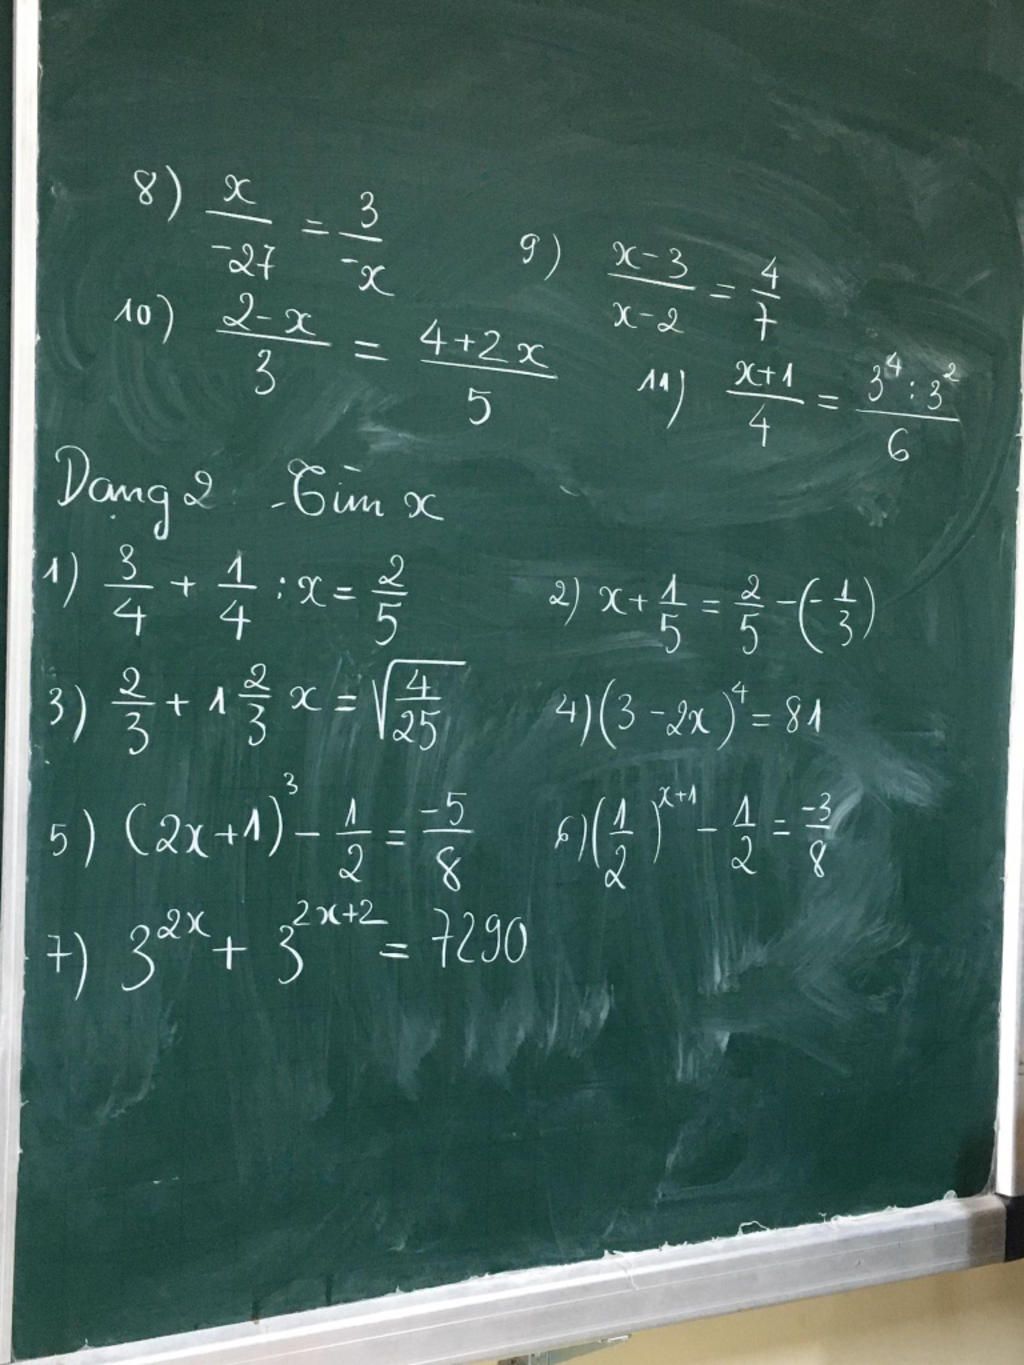 8) x/-27 = 3/-x
9) x-3/x-2 = 4/7
10) 2-x/3 = 4+2x/5
11) x+1/4 = 3⁴:3²/6
Dạng 2 - Tìm x
1) 3/4 + 1/4 : x = 2/5
2) x + 1/5 = 2/5 - (-1/3)
3) 2/3 + 1 2/3 x = √(4/25)
4) (3-2x)⁴ = 81
5) (2x+1)³ - 1/2 = -5/8
6) (1/2)^(x+1) - 1/2 = -3/8
7) 3^(2x) + 3^(2x+2) = 7290